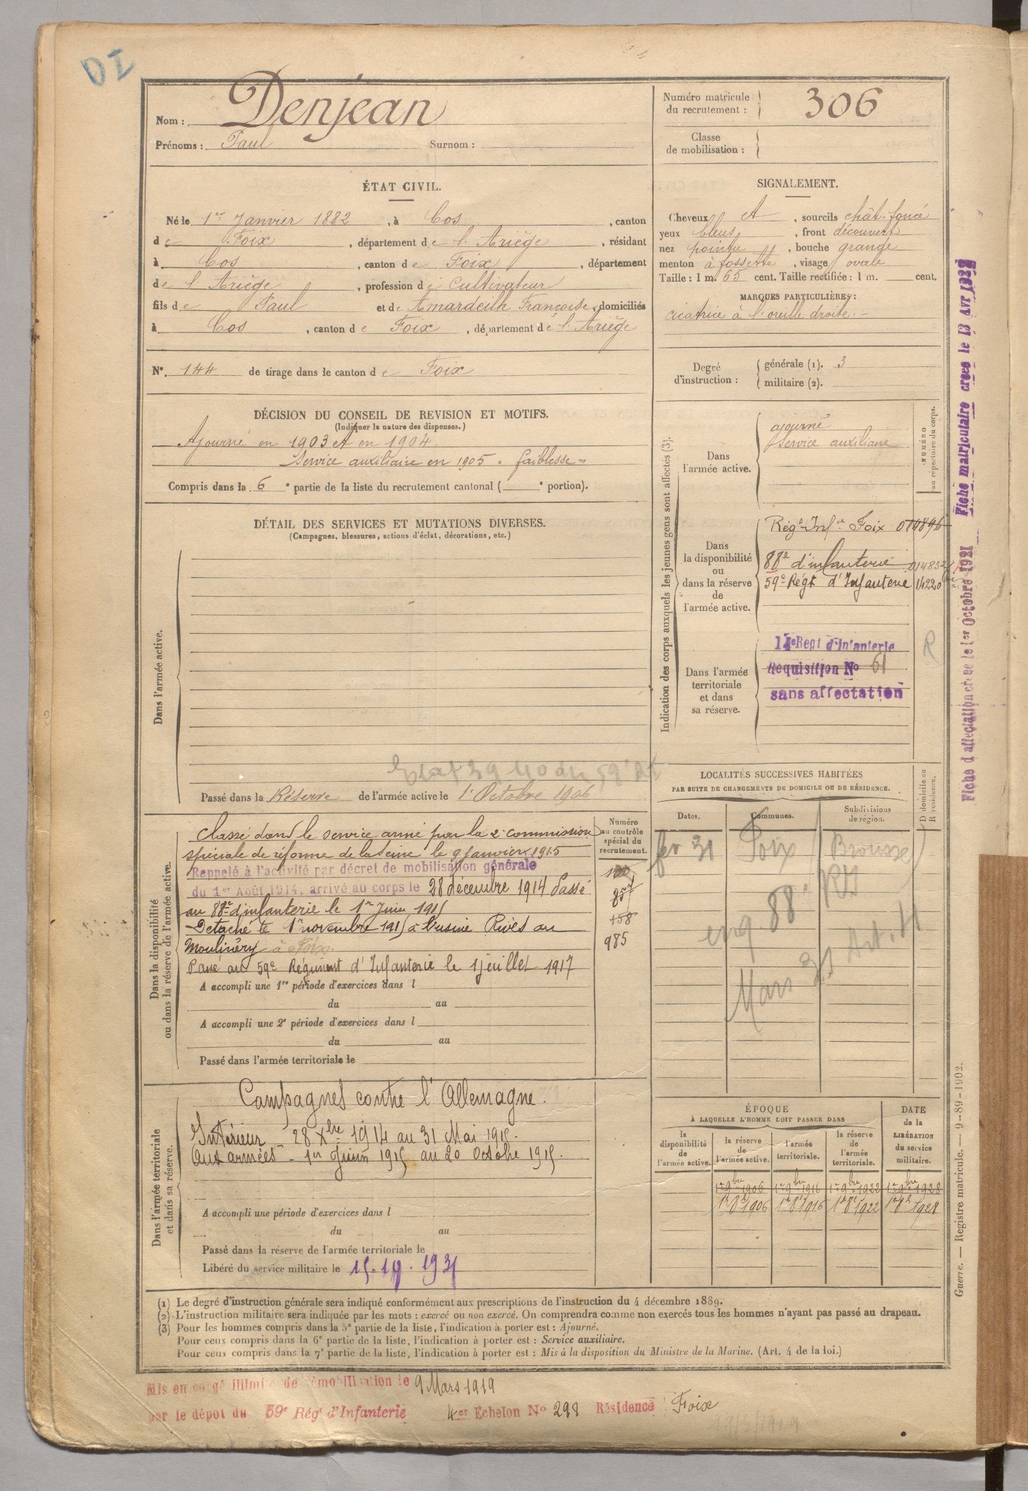 DI
Nom : Denjean
Prénoms : Paul Surnom :
Numéro matricule du recrutement : 306
Classe de mobilisation :
ÉTAT CIVIL.
Né le 1er Janvier 1882, à Cos, canton
de Foix, département de l'Ariège, résidant
à Cos, canton de Foix, département
de l'Ariège, profession de Cultivateur
fils de Paul et de Amardeilh Françoise, domiciliés
à Cos, canton de Foix, département de l'Ariège
N° 144 de tirage dans le canton de Foix
SIGNALEMENT.
Cheveux et, sourcils chât. foncé
yeux bleus, front découvert
nez pointu, bouche grande
menton à fossette, visage ovale
Taille : 1 m. 65 cent. Taille rectifiée : 1 m. cent.
MARQUES PARTICULIÈRES :
cicatrice à l'oreille droite.
Degré d'instruction :
générale (1). 3
militaire (2).
DÉCISION DU CONSEIL DE REVISION ET MOTIFS.
(Indiquer la nature des dispenses.)
Ajourné en 1903 et en 1904.
Service auxiliaire en 1905. faiblesse
Compris dans la 6e partie de la liste du recrutement cantonal ( e portion).
Indication des corps auxquels les jeunes gens sont affectés (3).
NUMÉRO au répertoire du corps.
Dans l'armée active.
ajourné
service auxiliaire
Dans la disponibilité ou dans la réserve de l'armée active.
Régt Infie Foix
88e d'infanterie
59e Régt d'Infanterie 14220
Dans l'armée territoriale et dans sa réserve.
14e Regt d'Infanterie
Requisition No 61
sans affectation
R
DÉTAIL DES SERVICES ET MUTATIONS DIVERSES.
(Campagnes, blessures, actions d'éclat, décorations, etc.)
Dans l'armée active.
Passé dans la Réserve de l'armée active le 1er Octobre 1906
LOCALITÉS SUCCESSIVES HABITÉES
PAR SUITE DE CHANGEMENTS DE DOMICILE OU DE RÉSIDENCE.
Dates. Communes. Subdivisions de région. D domicile ou R résidence.
fev 31 Foix
Mars 31
Dans la disponibilité ou dans la réserve de l'armée active.
Numéro au contrôle spécial du recrutement.
Classé dans le service armé par la 2e commission
spéciale de réforme de la Seine le 9 janvier 1915
Rappelé à l'activité par décret de mobilisation générale
du 1er Août 1914, arrivé au corps le 28 décembre 1914 Passé
au 88e d'infanterie le 1er Juin 1915
Détaché le 1er novembre 1915 à l'usine Rivès au
Moulinéry à Foix.
985
Passé au 59e Régiment d'Infanterie le 1 juillet 1917
A accompli une 1re période d'exercices dans l
du au
A accompli une 2e période d'exercices dans l
du au
Passé dans l'armée territoriale le
Dans l'armée territoriale et dans sa réserve.
Campagnes contre l'Allemagne.
Intérieur - 28 Xbre 1914 au 31 Mai 1915.
Aux armées - 1er Juin 1915 au 20 Octobre 1915.
A accompli une période d'exercices dans l
du au
Passé dans la réserve de l'armée territoriale le
Libéré du service militaire le
ÉPOQUE
À LAQUELLE L'HOMME DOIT PASSER DANS
la disponibilité de l'armée active. la réserve de l'armée active. l'armée territoriale. la réserve de l'armée territoriale.
DATE de la LIBÉRATION du service militaire.
1er 9bre 1906 1er 9bre 1916 1er 9bre 1922 1er 9bre 1928
1er 8bre 1906 1er 8bre 1916 1er 8bre 1922 1er 8bre 1928
(1) Le degré d'instruction générale sera indiqué conformément aux prescriptions de l'instruction du 4 décembre 1889.
(2) L'instruction militaire sera indiquée par les mots : exercé ou non exercé. On comprendra comme non exercés tous les hommes n'ayant pas passé au drapeau.
(3) Pour les hommes compris dans la 5e partie de la liste, l'indication à porter est : Ajourné.
Pour ceux compris dans la 6e partie de la liste, l'indication à porter est : Service auxiliaire.
Pour ceux compris dans la 7e partie de la liste, l'indication à porter est : Mis à la disposition du Ministre de la Marine. (Art. 4 de la loi.)
Mis en congé illimité de démobilisation le 9 Mars 1919
par le dépôt du 59e Régt d'Infanterie 4e Echelon No 298 Résidence Foix
Fiche d'affectation créée le 1er Octobre 1921 Fiche matriculaire créée le 13 Avr 1922
Guerre. — Registre matricule. — 9-89-1902.